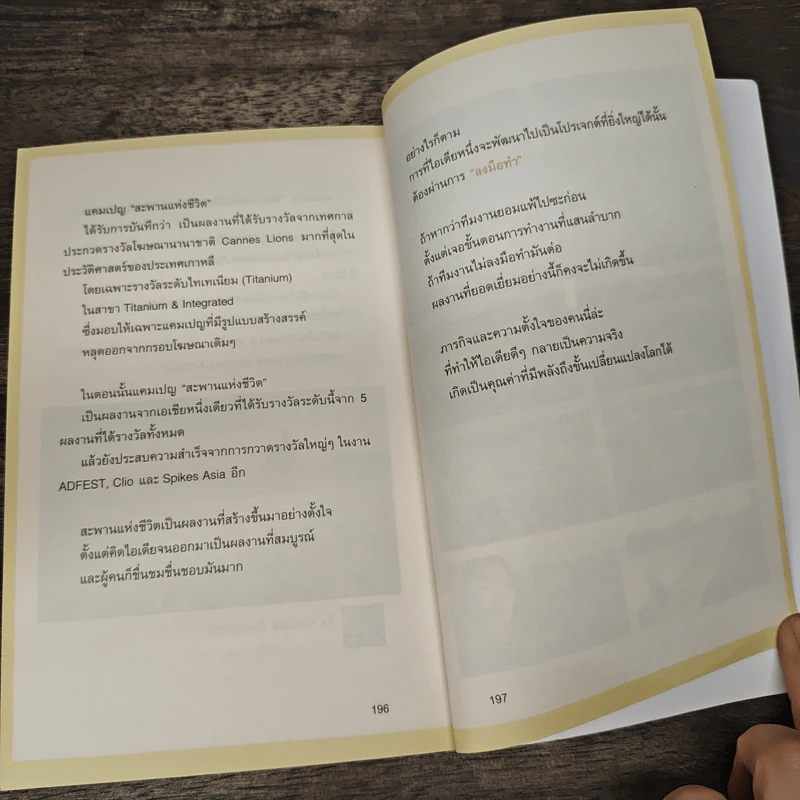 แคมเปญ "สะพานแห่งชีวิต"
ได้รับการบันทึกว่า เป็นผลงานที่ได้รับรางวัลจากเทศกาล
ประกวดรางวัลโฆษณานานาชาติ Cannes Lions มากที่สุดใน
ประวัติศาสตร์ของประเทศเกาหลี
โดยเฉพาะรางวัลระดับไทเทเนียม (Titanium)
ในสาขา Titanium & Integrated
ซึ่งมอบให้เฉพาะแคมเปญที่มีรูปแบบสร้างสรรค์
หลุดออกจากกรอบโฆษณาเดิมๆ
ในตอนนั้นแคมเปญ "สะพานแห่งชีวิต"
เป็นผลงานจากเอเชียหนึ่งเดียวที่ได้รับรางวัลระดับนี้จาก 5
ผลงานที่ได้รางวัลทั้งหมด
แล้วยังประสบความสำเร็จจากการกวาดรางวัลใหญ่ๆ ในงาน
ADFEST, Clio และ Spikes Asia อีก
สะพานแห่งชีวิตเป็นผลงานที่สร้างขึ้นมาอย่างตั้งใจ
ตั้งแต่คิดไอเดียจนออกมาเป็นผลงานที่สมบูรณ์
และผู้คนก็ชื่นชมชื่นชอบมันมาก
196
อย่างไรก็ตาม
การที่ไอเดียหนึ่งจะพัฒนาไปเป็นโปรเจกต์ที่ยิ่งใหญ่ได้นั้น
ต้องผ่านการ "ลงมือทำ"
ถ้าหากว่าทีมงานยอมแพ้ไปซะก่อน
ตั้งแต่เจอขั้นตอนการทำงานที่แสนลำบาก
ถ้าทีมงานไม่ลงมือทำมันต่อ
ผลงานที่ยอดเยี่ยมอย่างนี้ก็คงจะไม่เกิดขึ้น
ภารกิจและความตั้งใจของคนนี่ล่ะ
ที่ทำให้ไอเดียดีๆ กลายเป็นความจริง
เกิดเป็นคุณค่าที่มีพลังถึงขั้นเปลี่ยนแปลงโลกได้
197